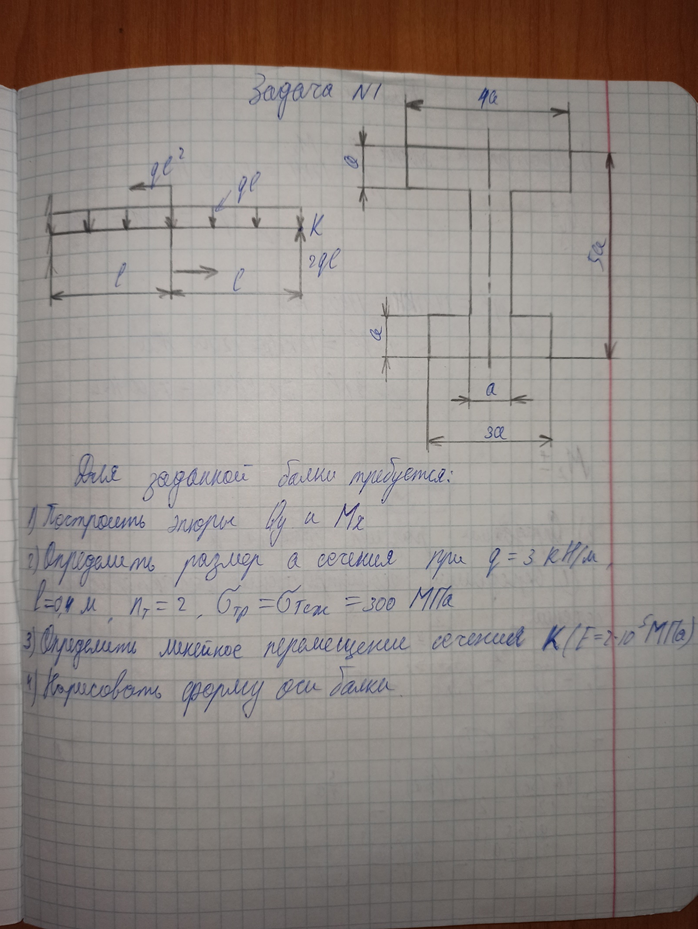 Задача №1
4a
a
5a
a
a
3a
ql²
ql
K
2ql
l
l
Для заданной балки требуется:
1) Построить эпюры Qy и Mx
2) Определить размер а сечения при q = 3 кН/м,
l=0,4 м, nт = 2, σтр = σтсж = 300 МПа
3) Определить линейное перемещение сечения K (E=2·10⁵МПа)
4) Нарисовать форму оси балки.